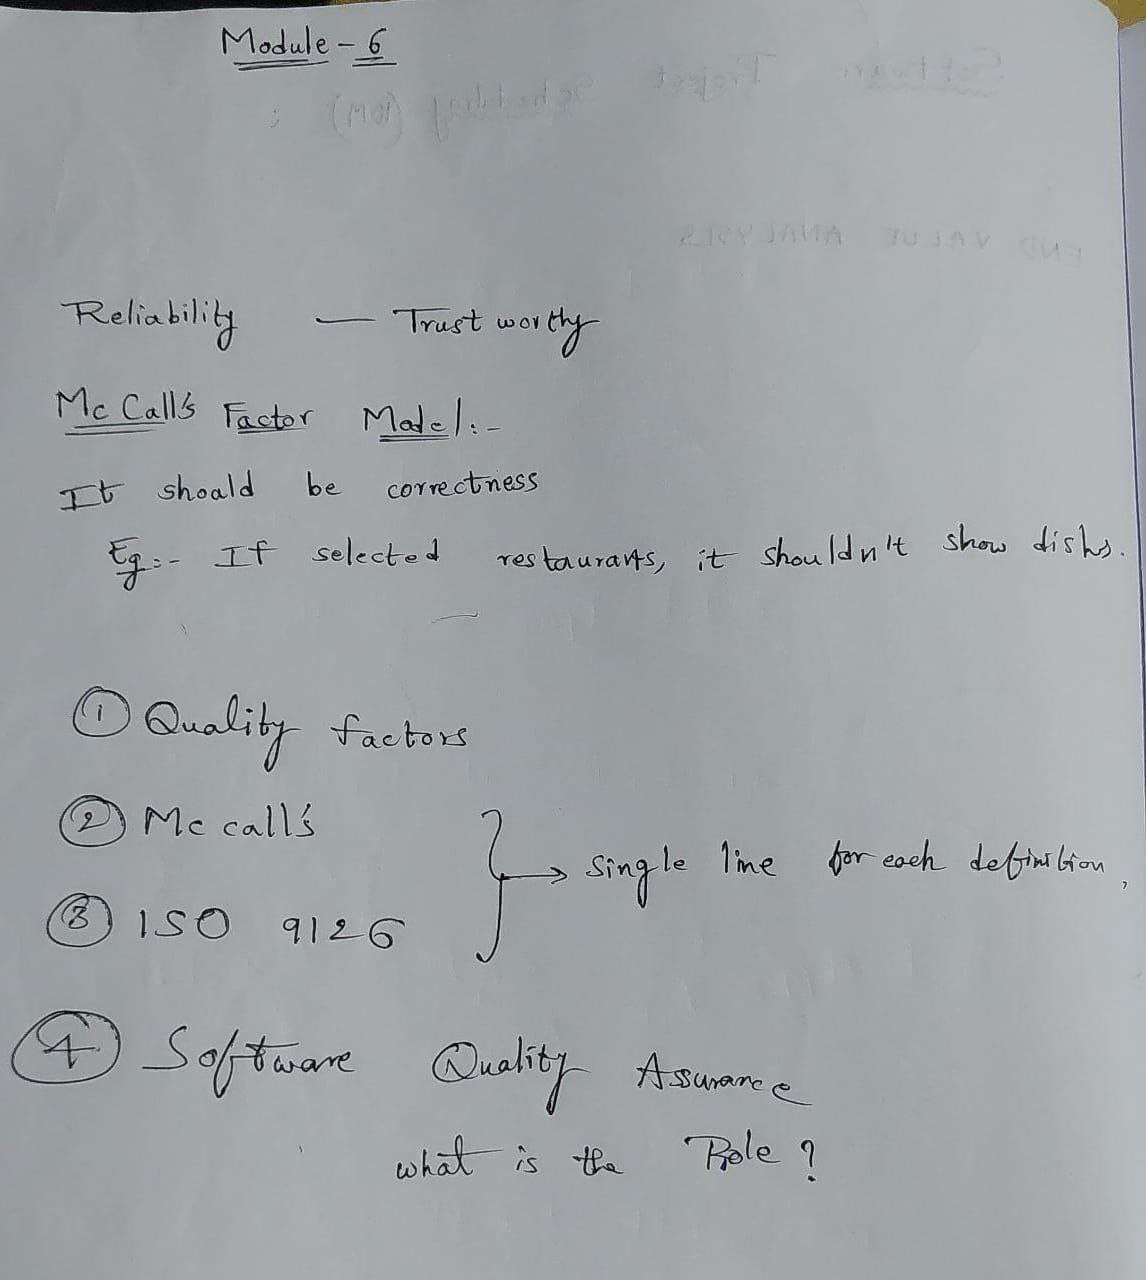 Module - 6
Reliability — Trust worthy
Mc Call's Factor Model :-
It should be correctness
Eg :- If selected restaurants, it shouldn't show dishs.
① Quality factors
② Mc call's
③ ISO 9126
} → single line for each definition,
④ Software Quality Assurance
what is the Role ?